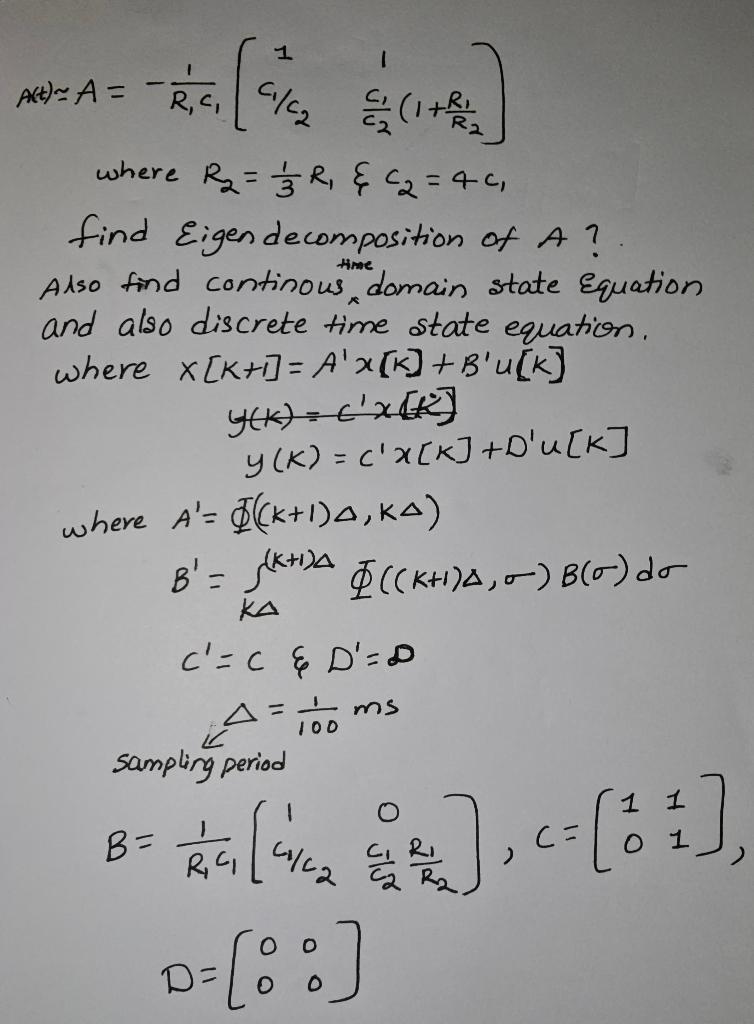 A(t) ≃ A = - 1/(R₁C₁) [ 1 1 ; C₁/C₂ C₁/C₂ (1 + R₁/R₂ ]
where R₂ = 1/3 R₁ & C₂ = 4C₁
find Eigen decomposition of A ?
Also find continous time domain state Equation
and also discrete time state equation.
where x[K+1] = A'x[K] + B'u[K]
y(K) = c'x[K]
y(K) = c'x[K] + D'u[K]
where A' = Φ((K+1)Δ, KΔ)
B' = ∫_{KΔ}^{(K+1)Δ} Φ((K+1)Δ, σ) B(σ) dσ
C' = C & D' = D
Δ = 1/100 ms
sampling period
B = 1/(R₁C₁) [ 1 0 ; C₁/C₂ C₁/C₂ R₁/R₂ ], C = [ 1 1 ; 0 1 ],
D = [ 0 0 ; 0 0 ]